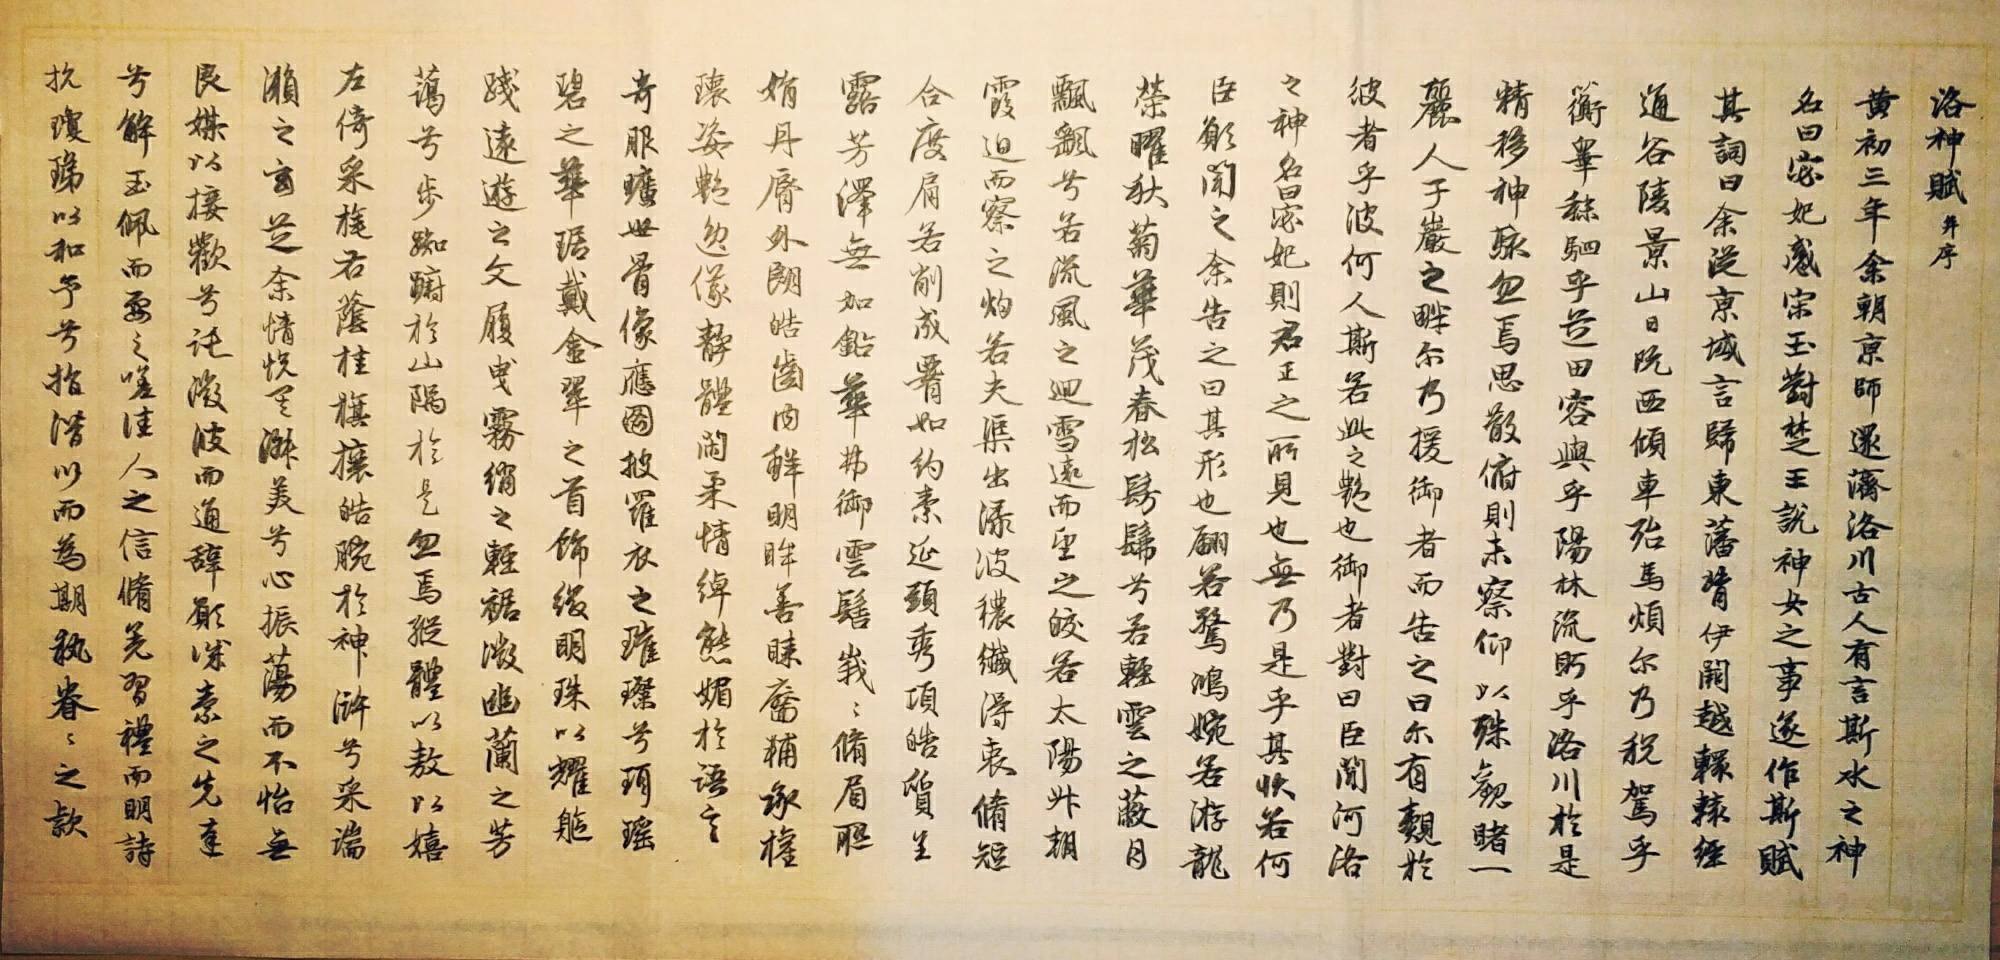 洛神賦 并序
黃初三年余朝京師還濟洛川古人有言斯水之神
名曰宓妃感宋玉對楚王說神女之事遂作斯賦
其詞曰余從京域言歸東藩背伊闕越轘轅經
通谷陵景山日既西傾車殆馬煩尔乃稅駕乎
蘅皋秣駟乎芝田容與乎陽林流眄乎洛川於是
精移神駭忽焉思散俯則未察仰以殊觀睹一
麗人于巖之畔尔乃援御者而告之曰尔有覿於
彼者乎彼何人斯若此之艷也御者對曰臣聞河洛
之神名曰宓妃則君王之所見也無乃是乎其狀若何
臣願聞之余告之曰其形也翩若驚鴻婉若游龍
榮曜秋菊華茂春松髣髴兮若輕雲之蔽月
飄飖兮若流風之迴雪遠而望之皎若太陽升朝
霞迫而察之灼若夫渠出淥波穠纖得衷脩短
合度肩若削成署如約素延頸秀項皓質呈
露芳澤無加鉛華弗御雲髻峩〻脩眉聯
娟丹脣外朗皓齒內鮮明眸善睞靨輔承權
瓌姿艷逸儀靜體閑柔情綽態媚於語言
奇服曠世骨像應圖披羅衣之璀璨兮珥瑤
碧之華琚戴金翠之首飾綴明珠以耀軀
踐遠遊之文履曳霧綃之輕裾微幽蘭之芳
藹兮步踟躕於山隅於是忽焉縱體以敖以嬉
左倚采旄右蔭桂旗攘皓腕於神滸兮采湍
瀨之玄芝余情悅其淑美兮心振蕩而不怡無
良媒以接歡兮託微波而通辭願誠素之先達
兮解玉佩而要之嗟佳人之信脩羌習禮而明詩
抗瓊珶以和予兮指潛川而為期執眷〻之款